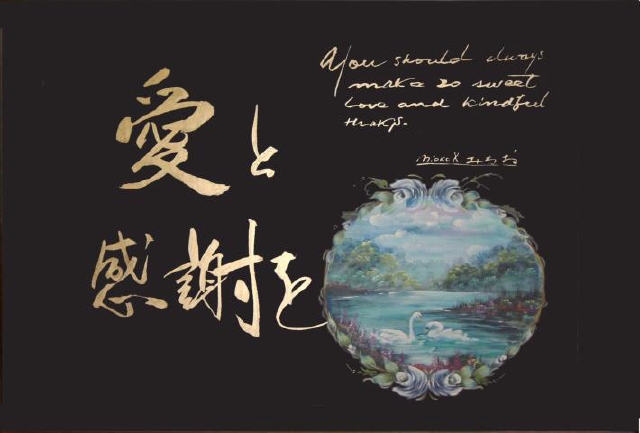 愛と
感謝を
You should always
make so sweet
Love and kindful
thanks.